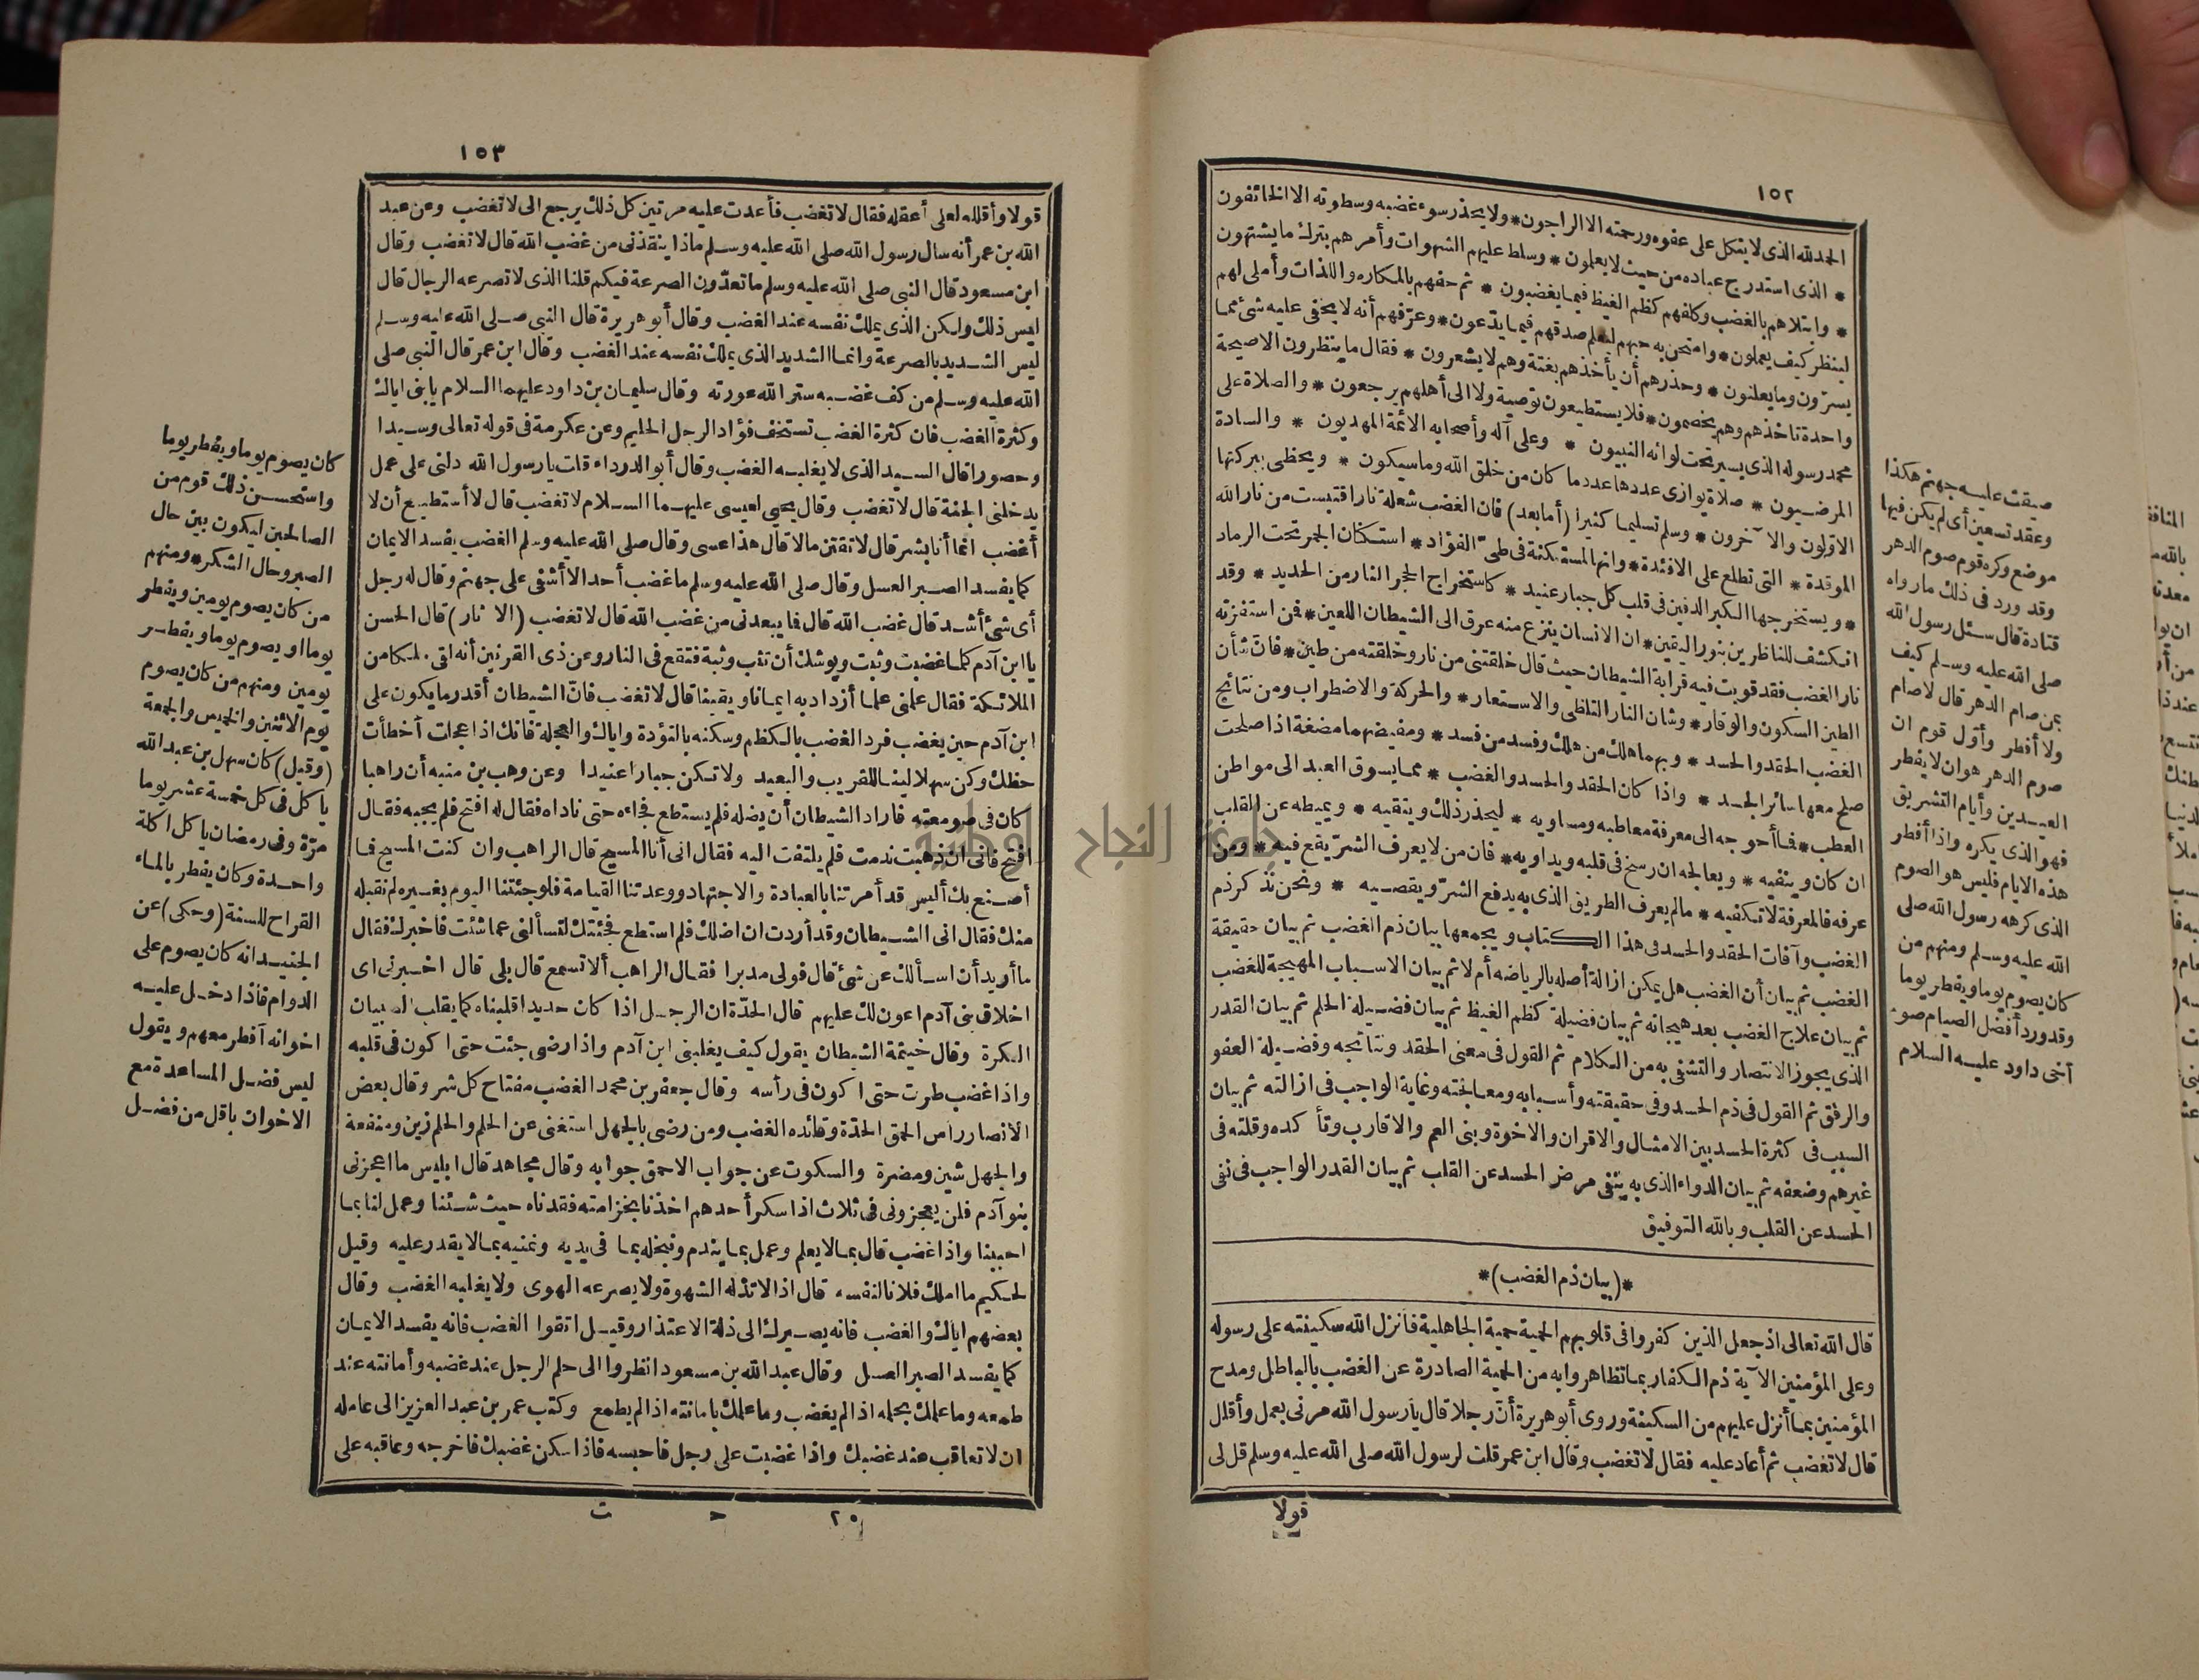 ١٥٢
الحمد لله الذى لا يتكل على عفوه ورحمته الا الراجون * ولا يحذر سوء غضبه وسطوته الا الخائفون
* الذى استدرج عباده من حيث لا يعلمون * وسلط عليهم الشهوات وأمرهم بترك ما يشتهون
* وابتلاهم بالغضب وكلفهم كظم الغيظ فيما يغضبون * ثم حفهم بالمكاره واللذات وأملى لهم
لينظر كيف يعملون * وامتحن به حبهم ليعلم صدقهم فيما يدّعون * وعرّفهم أنه لا يخفى عليه شئ مما
يسرّون وما يعلنون * وحذرهم أن يأخذهم بغتة وهم لا يشعرون * فقال ما ينظرون الا صيحة
واحدة تأخذهم وهم يخصمون * فلا يستطيعون توصية ولا الى أهلهم يرجعون * والصلاة على
محمد رسوله الذى يسير تحت لوائه النبيون * وعلى آله وأصحابه الأئمة المهديون * والسادة
المرضيون * صلاة يوازى عددها عدد ما كان من خلق الله وما سيكون * ويحظى ببركتها
الاوّلون والآخرون * وسلم تسليما كثيرا (أما بعد) فان الغضب شعلة نار اقتبست من نار الله
الموقدة * التى تطلع على الافئدة * وانها المستكنة فى طىّ الفؤاد * استكنان الجمر تحت الرماد
* ويستخرجها الكبر الدفين فى قلب كل جبار عنيد * كاستخراج الحجر النار من الحديد * وقد
انكشف للناظرين بنور اليقين * ان الانسان ينزع منه عرق الى الشيطان اللعين * فمن استفزته
نار الغضب فقد قويت فيه قرابة الشيطان حيث قال خلقتنى من نار وخلقته من طين * فان شأن
الطين السكون والوقار * وشان النار التلظى والاستعار * والحركة والاضطراب ومن نتائج
الغضب الحقد والحسد * وبهما هلك من هلك وفسد من فسد * ومفيضهما مضغة اذا صلحت
صلح معها سائر الجسد * واذا كان الحقد والحسد والغضب * مما يسوق العبد الى مواطن
العطب * فما أحوجه الى معرفة معاطبه ومساويه * ليحذر ذلك ويتقيه * ويميطه عن القلب
ان كان وينفيه * ويعالجه ان رسخ فى قلبه ويداويه * فان من لا يعرف الشرّ يقع فيه * ومن
عرفه فالمعرفة لا تكفيه * ما لم يعرف الطريق الذى به يدفع الشرّ ويقصيه * ونحن نذكر ذم
الغضب وآفات الحقد والحسد فى هذا الكتاب ويجمعها بيان ذم الغضب ثم بيان حقيقة
الغضب ثم بيان أن الغضب هل يمكن ازالة أصله بالرياضه أم لا ثم بيان الاسباب المهيجة للغضب
ثم بيان علاج الغضب بعد هيجانه ثم بيان فضيلة كظم الغيظ ثم بيان فضيلة الحلم ثم بيان القدر
الذى يجوز الانتصار والتشفى به من الكلام ثم القول فى معنى الحقد ونتائجه وفضيلة العفو
والرفق ثم القول فى ذم الحسد وفى حقيقته وأسبابه ومعالجته وغاية الواجب فى ازالته ثم بيان
السبب فى كثرة الحسد بين الامثال والاقران والاخوة وبنى العم والاقارب وتأكده وقلته فى
غيرهم وضعفه ثم بيان الدواء الذى به ينفى مرض الحسد عن القلب ثم بيان القدر الواجب فى نفى
الحسد عن القلب وبالله التوفيق
*(بيان ذم الغضب)*
قال الله تعالى اذ جعل الذين كفروا فى قلوبهم الحمية حمية الجاهلية فأنزل الله سكينته على رسوله
وعلى المؤمنين الآية ذم الكفار بما تظاهروا به من الحمية الصادرة عن الغضب بالباطل ومدح
المؤمنين بما أنزل عليهم من السكينة وروى أبو هريرة أنّ رجلا قال يا رسول الله مرنى بعمل وأقلل
قال لا تغضب ثم أعاد عليه فقال لا تغضب وقال ابن عمر قلت لرسول الله صلى الله عليه وسلم قل لى
قولا
ضيقت عليه جهنم هكذا
وعقد تسعين أى لم يكن فيها
موضع وكره قوم صوم الدهر
وقد ورد فى ذلك ما رواه
قتادة قال سئل رسول الله
صلى الله عليه وسلم كيف
بمن صام الدهر قال لا صام
ولا أفطر وأوّل قوم ان
صوم الدهر هو ان لا يفطر
العيدين وأيام التشريق
فهو الذى يكره واذا أفطر
هذه الايام فليس هو الصوم
الذى كرهه رسول الله صلى
الله عليه وسلم ومنهم من
كان يصوم يوما ويفطر يوما
وقد ورد أفضل الصيام صوم
أخى داود عليه السلام
١٥٣
قولا وأقلله لعلى أعقله فقال لا تغضب فأعدت عليه مرتين كل ذلك يرجع الى لا تغضب وعن عبد
الله بن عمر أنه سال رسول الله صلى الله عليه وسلم ماذا ينقذنى من غضب الله قال لا تغضب وقال
ابن مسعود قال النبى صلى الله عليه وسلم ما تعدّون الصرعة فيكم قلنا الذى لا تصرعه الرجال قال
ليس ذلك ولكن الذى يملك نفسه عند الغضب وقال أبو هريرة قال النبى صلى الله عليه وسلم
ليس الشديد بالصرعة وانما الشديد الذى يملك نفسه عند الغضب وقال ابن عمر قال النبى صلى
الله عليه وسلم من كف غضبه ستر الله عورته وقال سليمان بن داود عليهما السلام يا بنى اياك
وكثرة الغضب فان كثرة الغضب تستخف فؤاد الرجل الحليم وعن عكرمة فى قوله تعالى وسيدا
وحصورا قال السيد الذى لا يغلبه الغضب وقال أبو الدرداء قلت يا رسول الله دلنى على عمل
يدخلنى الجنة قال لا تغضب وقال يحيى لعيسى عليهما السلام لا تغضب قال لا أستطيع أن لا
أغضب انما أنا بشر قال لا تقتن مالا قال هذا عسى وقال صلى الله عليه وسلم الغضب يفسد الايمان
كما يفسد الصبر العسل وقال صلى الله عليه وسلم ما غضب أحد الا أشفى على جهنم وقال له رجل
أى شئ أشد قال غضب الله قال فما يبعدنى من غضب الله قال لا تغضب (الآثار) قال الحسن
يا ابن آدم كلما غضبت وثبت ويوشك أن تثب وثبة فتقع فى النار وعن ذى القرنين أنه لقى ملكا من
الملائكة فقال علمنى علما أزداد به ايمانا ويقينا قال لا تغضب فانّ الشيطان أقدر ما يكون على
ابن آدم حين يغضب فرد الغضب بالكظم وسكنه بالتؤدة واياك والعجلة فانك اذا عجلت أخطأت
حظك وكن سهلا لينا للقريب والبعيد ولا تكن جبارا عنيدا وعن وهب بن منبه أن راهبا
كان فى صومعته فاراد الشيطان أن يضله فلم يستطع فجاءه حتى ناداه فقال له افتح فلم يجبه فقال
افتح فانى ان ذهبت ندمت فلم يلتفت اليه فقال انى أنا المسيح قال الراهب وان كنت المسيح فما
أصنع بك أليس قد أمرتنا بالعبادة والاجتهاد ووعدتنا القيامة فلو جئتنا اليوم بغيره لم نقبله
منك فقال انى الشيطان وقد أردت ان اضلك فلم استطع فجئتك لتسألنى عما شئت فاخبرك فقال
ما أريد أن اسألك عن شئ قال فولى مدبرا فقال الراهب ألا تسمع قال بلى قال اخبرنى اى
اخلاق بنى آدم اعون لك عليهم قال الحدّة ان الرجل اذا كان حديدا قلبناه كما يقلب الصبيان
الكرة وقال خيثمة الشيطان يقول كيف يغلبنى ابن آدم واذا رضى جئت حتى اكون فى قلبه
واذا غضب طرت حتى اكون فى رأسه وقال جعفر بن محمد الغضب مفتاح كل شر وقال بعض
الانصار رأس الحمق الحدّة وقائده الغضب ومن رضى بالجهل استغنى عن الحلم والحلم زين ومنفعة
والجهل شين ومضرة والسكوت عن جواب الاحمق جوابه وقال مجاهد قال ابليس ما اعجزنى
بنو آدم فلن يعجزونى فى ثلاث اذا سكر أحدهم اخذنا بخزامته فقدناه حيث شئنا وعمل لنا بما
احببنا واذا غضب قال بما لا يعلم وعمل بما يندم ونبخله بما فى يديه ونمنيه بما لا يقدر عليه وقيل
لحكيم ما املك فلانا لنفسه قال اذا لا تذله الشهوة ولا يصرعه الهوى ولا يغلبه الغضب وقال
بعضهم اياك والغضب فانه يصيرك الى ذلة الاعتذار وقيل اتقوا الغضب فانه يفسد الايمان
كما يفسد الصبر العسل وقال عبد الله بن مسعود انظروا الى حلم الرجل عند غضبه وأمانته عند
طمعه وما علمك بحلمه اذا لم يغضب وما علمك بامانته اذا لم يطمع وكتب عمر بن عبد العزيز الى عامله
ان لا تعاقب عند غضبك واذا غضبت على رجل فاحبسه فاذا سكن غضبك فاخرجه وعاقبه على
٢٠ ح ت
كان يصوم يوما ويفطر يوما
واستحسن ذلك قوم من
الصالحين ليكون بين حال
الصبر وحال الشكر * ومنهم
من كان يصوم يومين ويفطر
يوما او يصوم يوما ويفطر
يومين ومنهم من كان يصوم
يوم الاثنين والخميس والجمعة
(وقيل) كان سهل بن عبد الله
يأكل فى كل خمسة عشر يوما
مرّة وفى رمضان يأكل اكلة
واحدة وكان يفطر بالماء
القراح للسنة (وحكى) عن
الجنيد انه كان يصوم على
الدوام فاذا دخل عليه
اخوانه أفطر معهم ويقول
ليس فضل المساعدة مع
الاخوان باقل من فضل
جامعة النجاح الوطنية